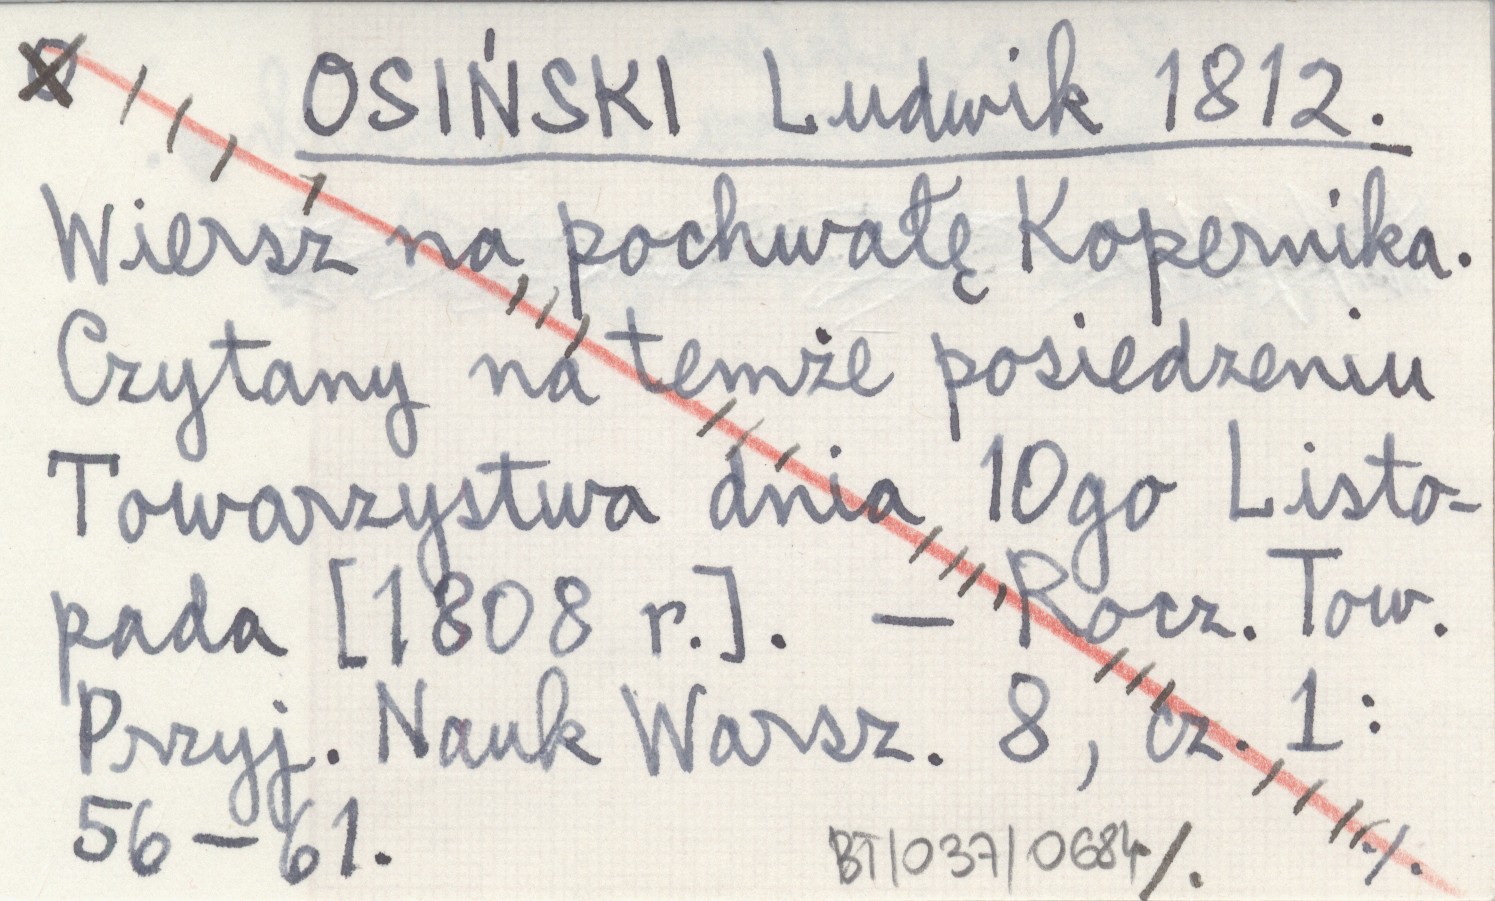 OSIŃSKI Ludwik 1812.
Wiersz na pochwałę Kopernika.
Czytany na temże posiedzeniu
Towarzystwa dnia 10go Listo-
pada [1808 r.]. — Rocz. Tow.
Przyj. Nauk Warsz. 8, cz. 1:
56-61.
BT/037/0684/.